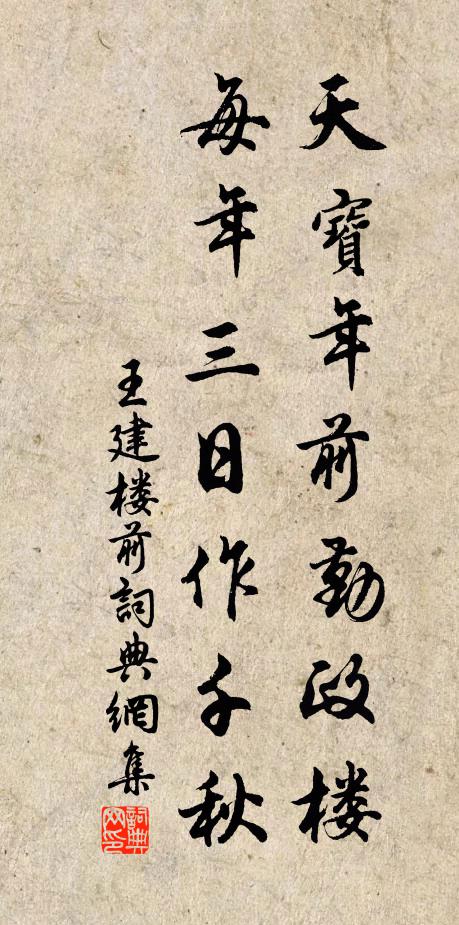 天寶年前勤政楼
每年三日作千秋
王建楼前詞典網集
詞典網印